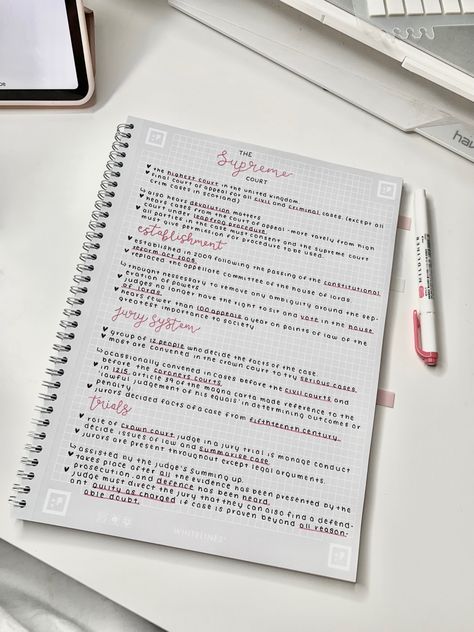 THE
Supreme
COURT
♥ the highest court in the united kingdom.
♥ final court of appeal for all civil and criminal cases. (except all
crim cases in scotland)
↳ also hears devolution matters.
♥ hears cases from the court of appeal - more rarely from high
court under leapfrog procedure.
♥ all parties in the case must consent and the supreme court
must give permission for procedure to be used.
establishment
♥ established in 2009 following the passing of the constitutional
reform act 2005.
♥ replaced the appellate committee of the house of lords.
↳ thought nessessary to remove any ambiguity around the sep-
eration of powers
♥ judges no longer have the right to sit and vote in the house
of lords.
♥ hears fewer than 100 appeals a year on points of law of the
greatest importance to society.
jury system
♥ group of 12 people who decide the facts of the case.
♥ most are convened in the crown court to try serious cases
↳ occassionally convened in cases before the civil courts and
before the coroners courts.
♥ in 1215, article 39 of the magna carta made reference to the
'lawful judgement of his equals' in determining outcomes or
penalty
♥ jurors decided facts of a case from fifthteenth century.
trials
♥ role of crown court judge in a jury trial is manage conduct
decide issues of law and summarise case.
♥ jurors are present throughout except legal arguments.
↳ assisted by the judge's summing up.
♥ takes place after all the evidence has been presented by the
prosecution, and defence has been heard.
♥ judge must direct the jury that they can also find a defend-
ant guilty as charged if case is proven beyond all reason-
able doubt.
WHITELINES